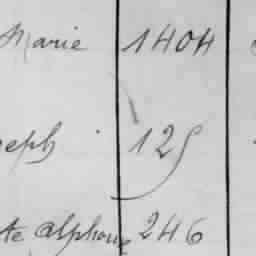 Marie 1404
seph 125
te Alphonse 246